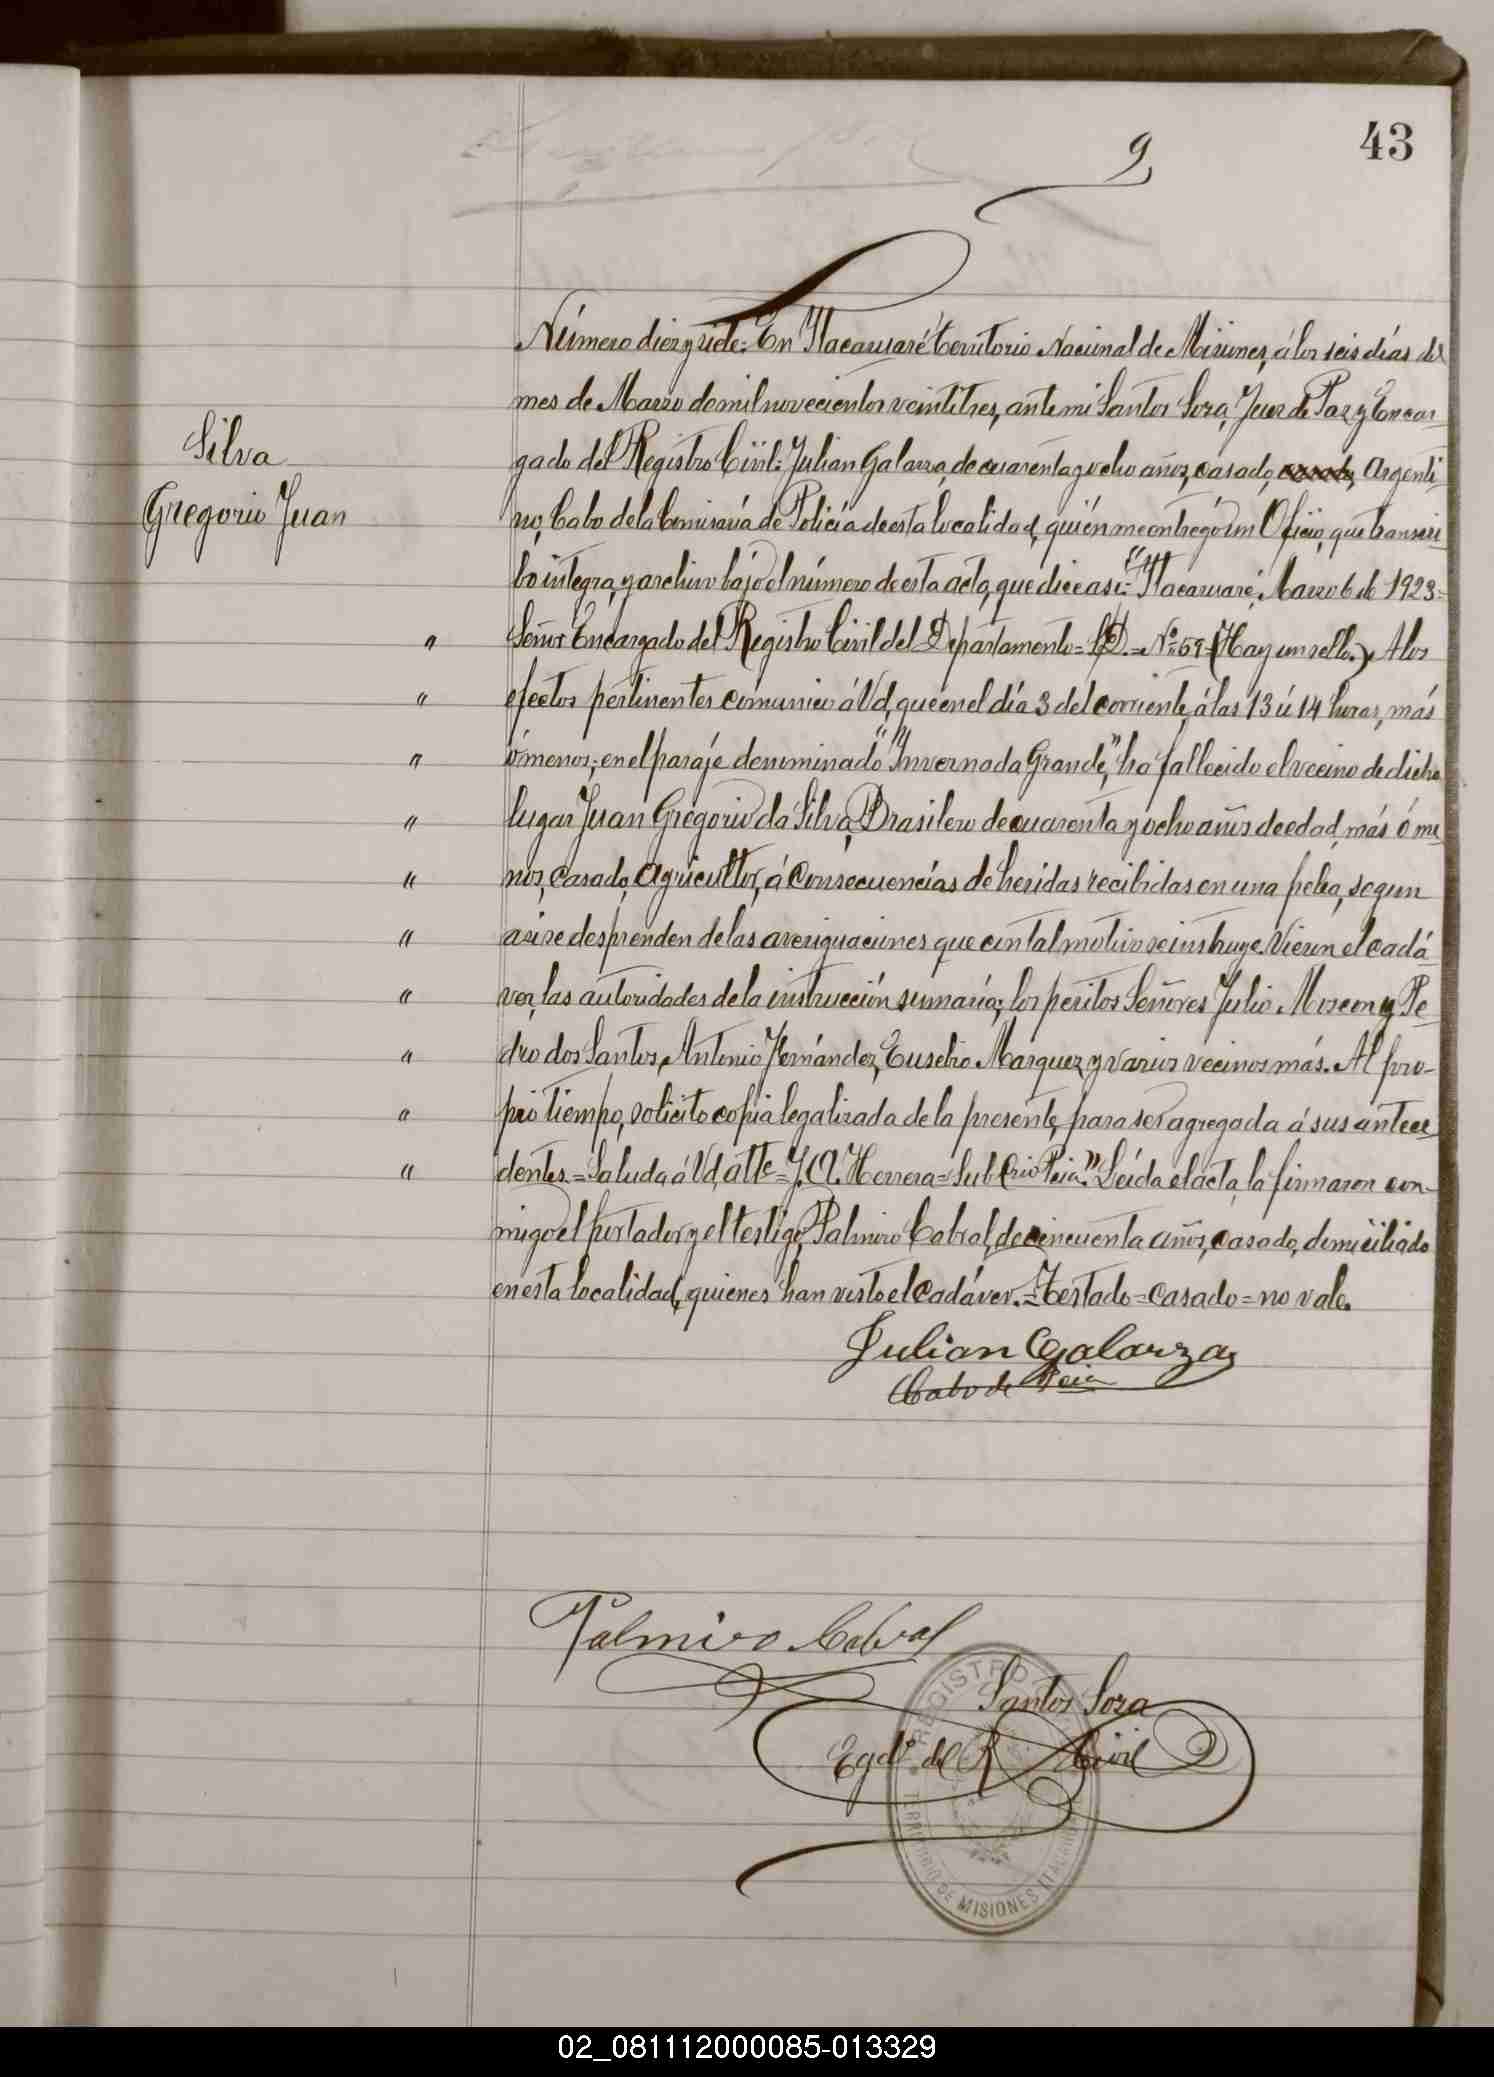 43
9
Número diez y siete: En Itacaruaré territorio Nacional de Misiones, á los seis días del
mes de Marzo de mil novecientos veintitres, ante mi Santos Sosa, Juez de Paz y Encar-
Silva
gado del Registro Civil: Julian Galarza, de cuarenta y ocho años, casado, casado, Argenti-
Gregorio Juan
no, Cabo de la Comisaría de Policía de esta localidad, quién me entregó un Oficio, que transcri-
bo integra, y archivo bájo el número de esta acta, que dice asi: "Itacaruaré, Marzo 6 de 1923=
" Señor Encargado del Registro Civil del Departamento= S/D.= Nº 59= (Hay un sello.) A los
" efectos pertinentes comunico á Vd, que en el día 3 del corriente, á las 13 ú 14 horas, más
" ó menos, en el paraje denominado "Invernada Grande", ha fallecido el vecino de dicho
" lugar Juan Gregorio da Silva, Brasilero de cuarenta y ocho años de edad, más ó me
" nos, casado, agricultor, á consecuencías de heridas recibidas en una pelea, segun
" asi se desprenden de las averiguaciones que con tal motivo se instruye. Vieron el cadá-
" ver, las autoridades de la instrucción sumaría; los peritos Señores Julio Moscon y Pe-
" dro dos Santos, Antonio Fernández, Eusebio Marquez y varios vecinos más. Al pro-
" pio tiempo, solicito copia legalizada de la presente, para ser agregada á sus antece
" dentes.= Saluda á Vd, atte= J. A. Herrera= Sub Crio Pcia." Leída el acta, la firmaron con-
migo el portador y el testigo, Palmiro Cabral, de cincuenta años, casado, domiciliado
en esta localidad, quienes han visto el cadáver.= Testado= casado= no vale.
Julian Galarza
Cabo de Pcia
Palmiro Cabral
Santos Sosa
Egdo del R Civil
REGISTRO
TERRITORIO DE MISIONES
02_081112000085-013329